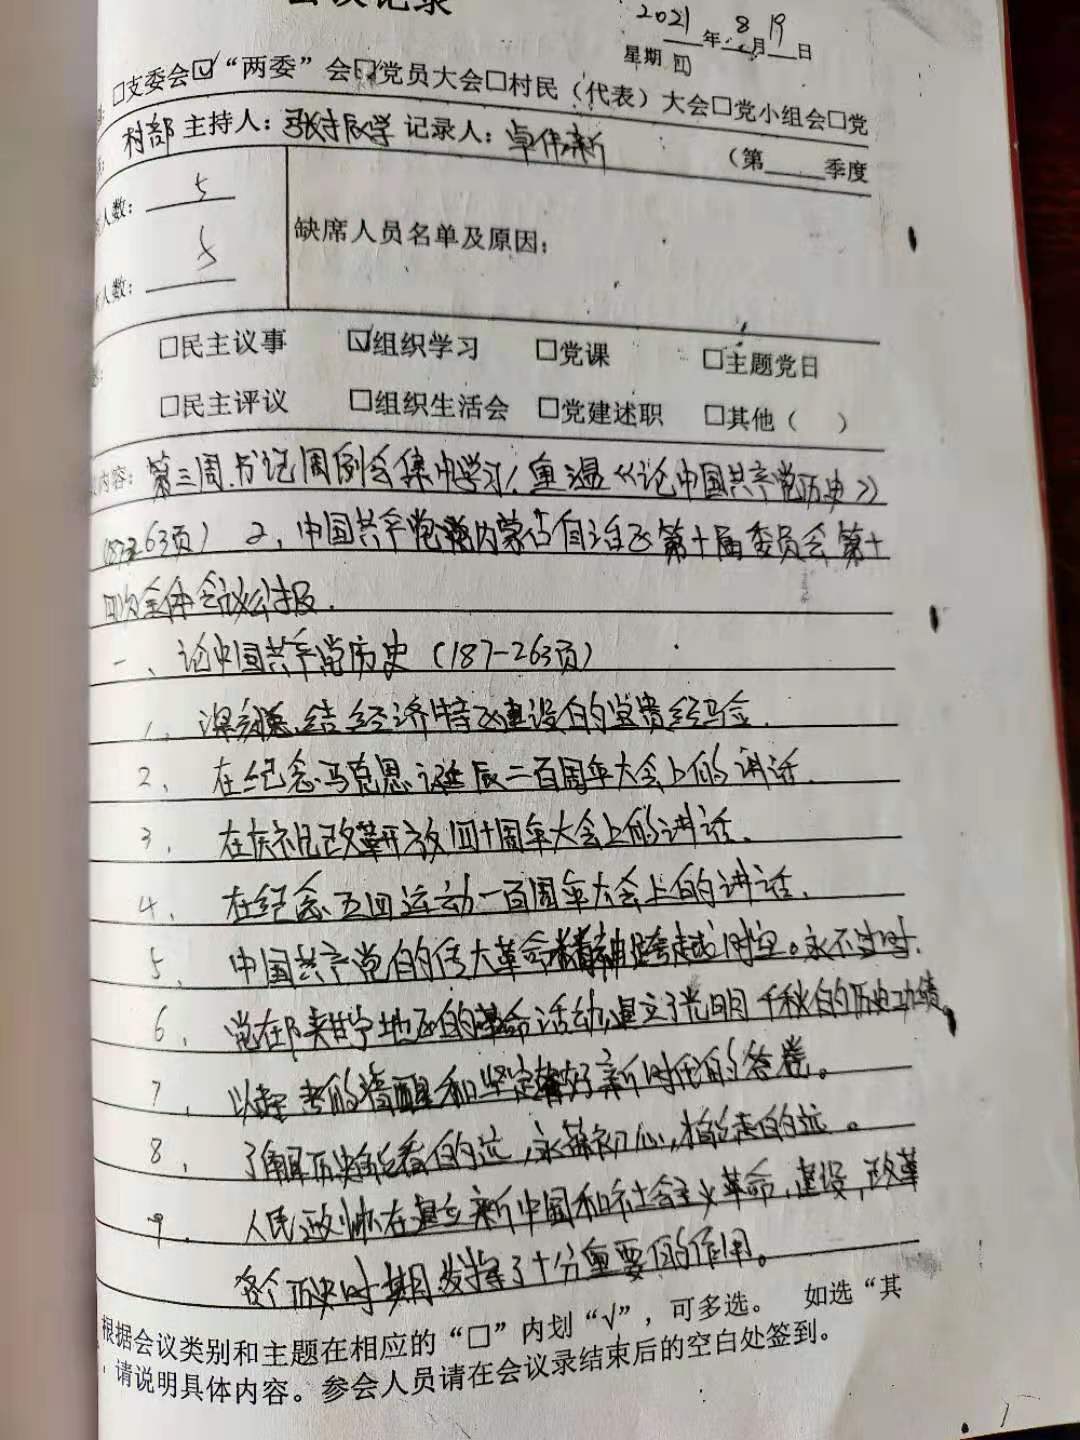 会议记录
2021年8月19日
星期四
□支委会☑“两委”会□党员大会□村民（代表）大会□党小组会□党
村部 主持人：张振学 记录人：卓伟新 （第____季度
人数：5
缺席人员名单及原因：
人数：5
□民主议事 ☑组织学习 □党课 □主题党日
□民主评议 □组织生活会 □党建述职 □其他（ ）
内容：第三周书记周例会集中学习1、重温《论中国共产党历史》
(187-263页) 2、中国共产党内蒙古自治区第十届委员会第十
四次全体会议公报.
一、论中国共产党历史（187-263页）
1、深刻总结经济特区建设的宝贵经验.
2、在纪念马克思诞辰二百周年大会上的讲话.
3、在庆祝改革开放四十周年大会上的讲话.
4、在纪念五四运动一百周年大会上的讲话.
5、中国共产党的伟大革命精神跨越时空。永不过时.
6、党在陕甘宁地区的革命活动,建立了光明千秋的历史功绩。
7、以赶考的清醒和坚定答好新时代的答卷。
8、了解历史才能看的远,永葆初心,才能走的远。
9.人民政协在建立新中国和社会主义革命、建设,改革
各个历史时期发挥了十分重要的作用。
根据会议类别和主题在相应的“□”内划“√”，可多选。 如选“其
请说明具体内容。参会人员请在会议录结束后的空白处签到。